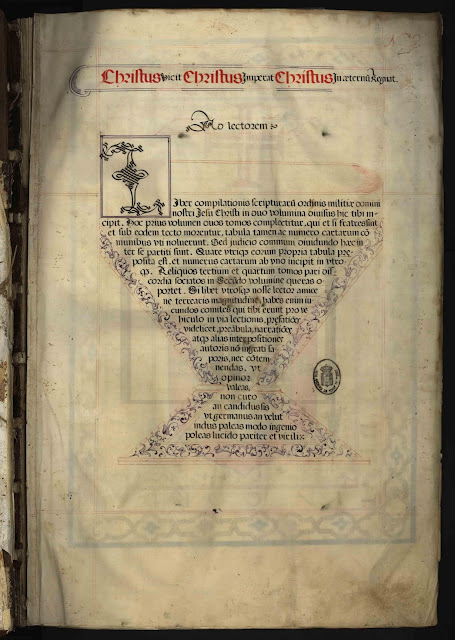 Christus vicit Christus Imperat Christus In æternũ Regnat.
Ad lectorem
Liber compilationis scripturarũ ordinis militiæ domini
nostri Jesu Christi in duo volumina divisus hic tibi in-
cipit. Hoc prius volumen duos tomos complectitur, qui et si
et sub eodem tecto morentur, tabula tamen ac numero cartarum cõ
munibus uti noluerunt. Sed judicio communi dividundo hæc in
ter se partiti sunt. Quare utriusq̃ eorum propria tabula præ-
posita est, et numerus cartarum ab uno incipit in utro
q̃. Reliquos tertium et quartum tomos pari dis-
cordia sociatos in secũdo volumine quæras o-
portet. Si libet utrosq̃ nosse lector amice
ne terrearis magnitudine, habes enim iu
cundos comites qui tibi erunt pro ve
hiculo in via lectionis, præfatiões
videlicet, præãbula, narratiões
atq̃ alias interpositiones
autoris nõ ingrati sa
poris, nec cõtem
nendas, ut
opinor
valeas,
non curo
an candidus sis
ut germanus an velut
indus paleas modo ingenio
poleas lucido pariter et